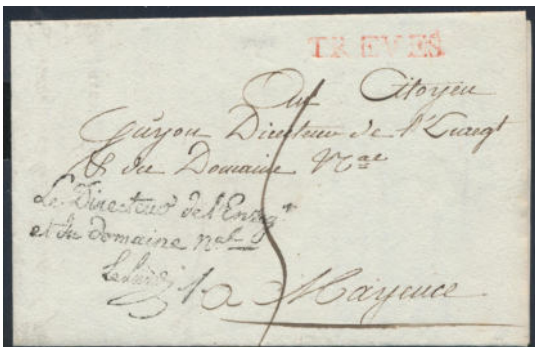 TREVES
Au Citoyen
Guyon Directeur de l'Enregt
& du Domaine Nal
Le Directeur de l'Enregt
et du domaine nal
a Mayence